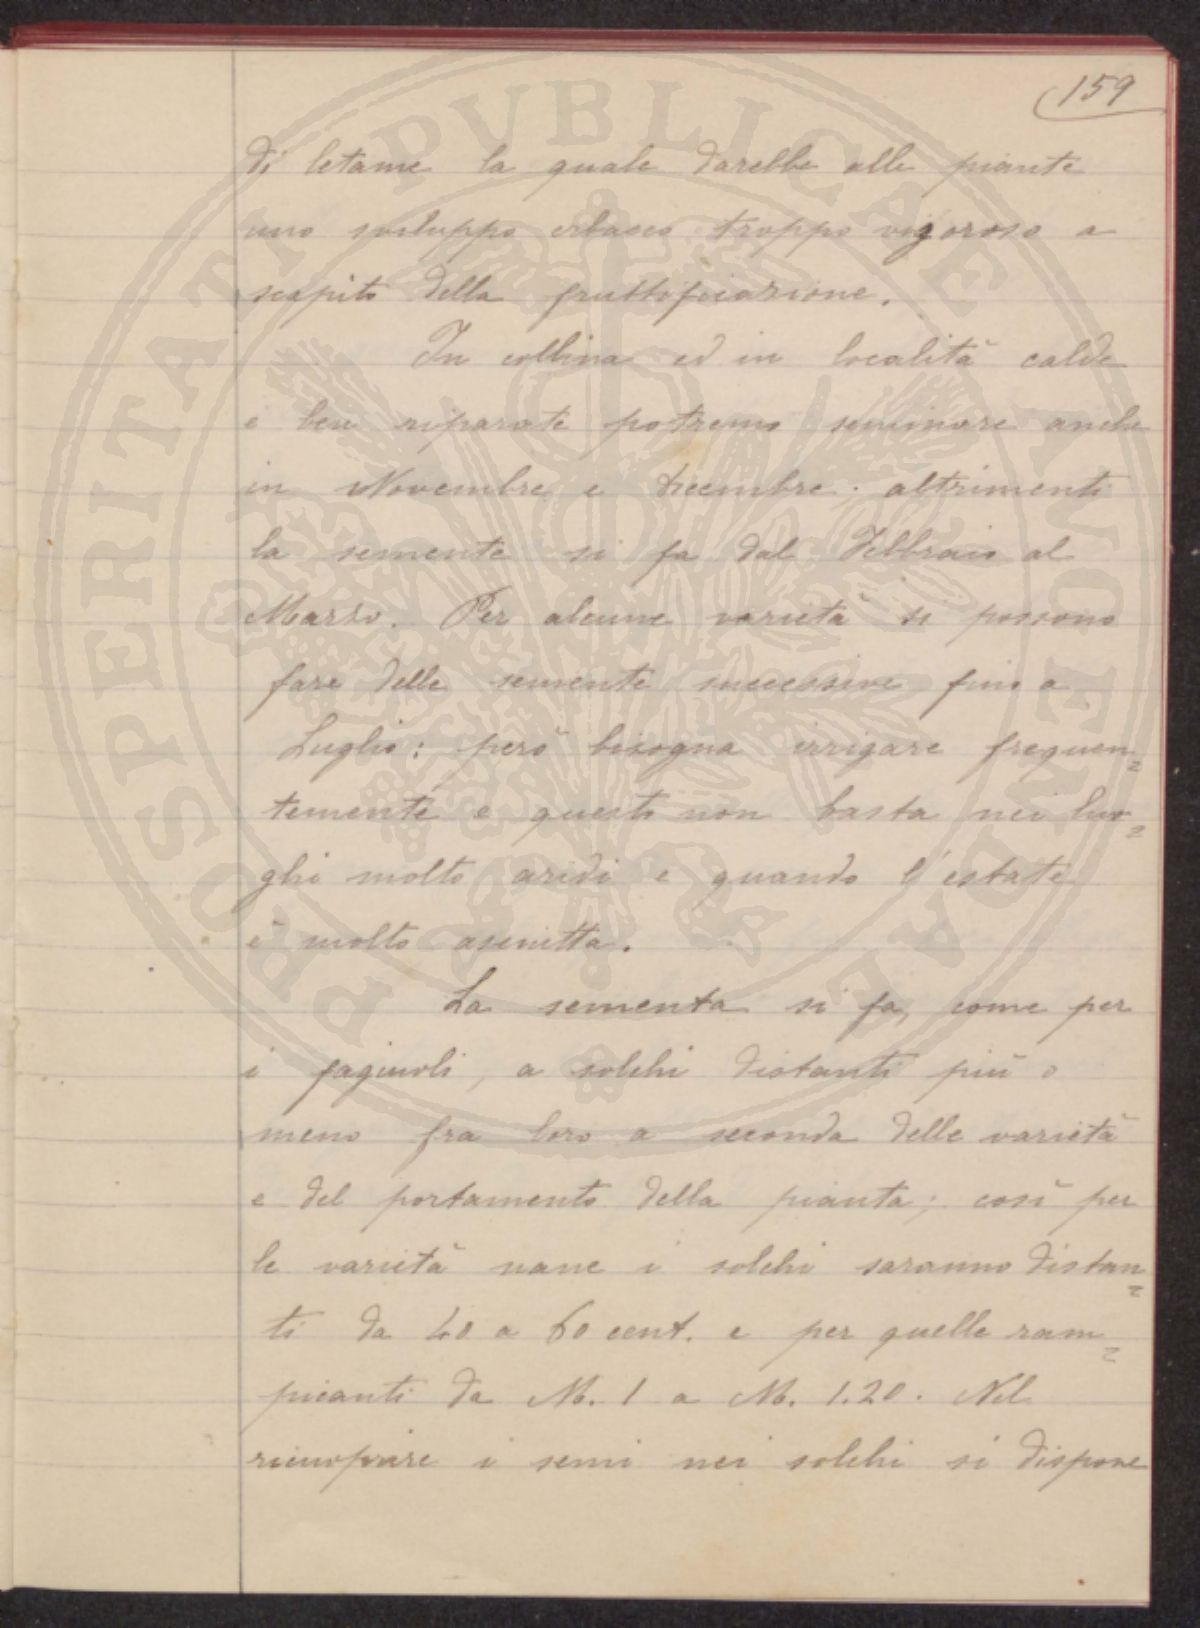 159
di letame la quale darebbe alle piante
uno sviluppo erbaceo troppo vigoroso a
scapito della fruttificazione.
In collina ed in località calde
e ben riparate potremo seminare anche
in Novembre e Dicembre; altrimenti
la semente si fa dal Febbraio al
Marzo. Per alcune varietà si possono
fare delle semente successive fino a
Luglio: però bisogna irrigare frequen=
temente e questo non basta nei luo=
ghi molto aridi e quando l'estate
è molto asciutta.
La sementa si fa, come per
i fagiuoli, a solchi distanti più o
meno fra loro a seconda delle varietà
e del portamento della pianta; così per
le varietà nane i solchi saranno distan=
ti da 40 a 60 cent. e per quelle ram=
picanti da M. 1 a M. 1.20. Nel
ricuoprire i semi nei solchi si dispone
PROSPERITATI PVBLICAE AVGENDAE